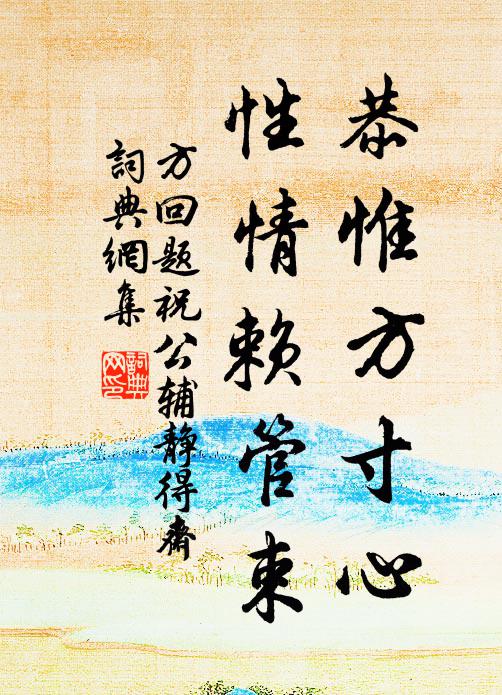 恭惟方寸心
性情赖管束
方回题祝公辅静得斋
詞典網集
詞典网印